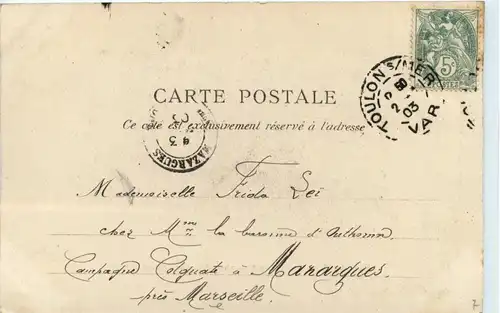 5c
TOULON S/MER
2 03
VAR
CARTE POSTALE
Ce côté est exclusivement réservé à l'adresse
MAZARGUES
Mademoiselle Frida Lei
chez Mme la baronne d'Authonn
Campagne à Manargues
près Marseille
7